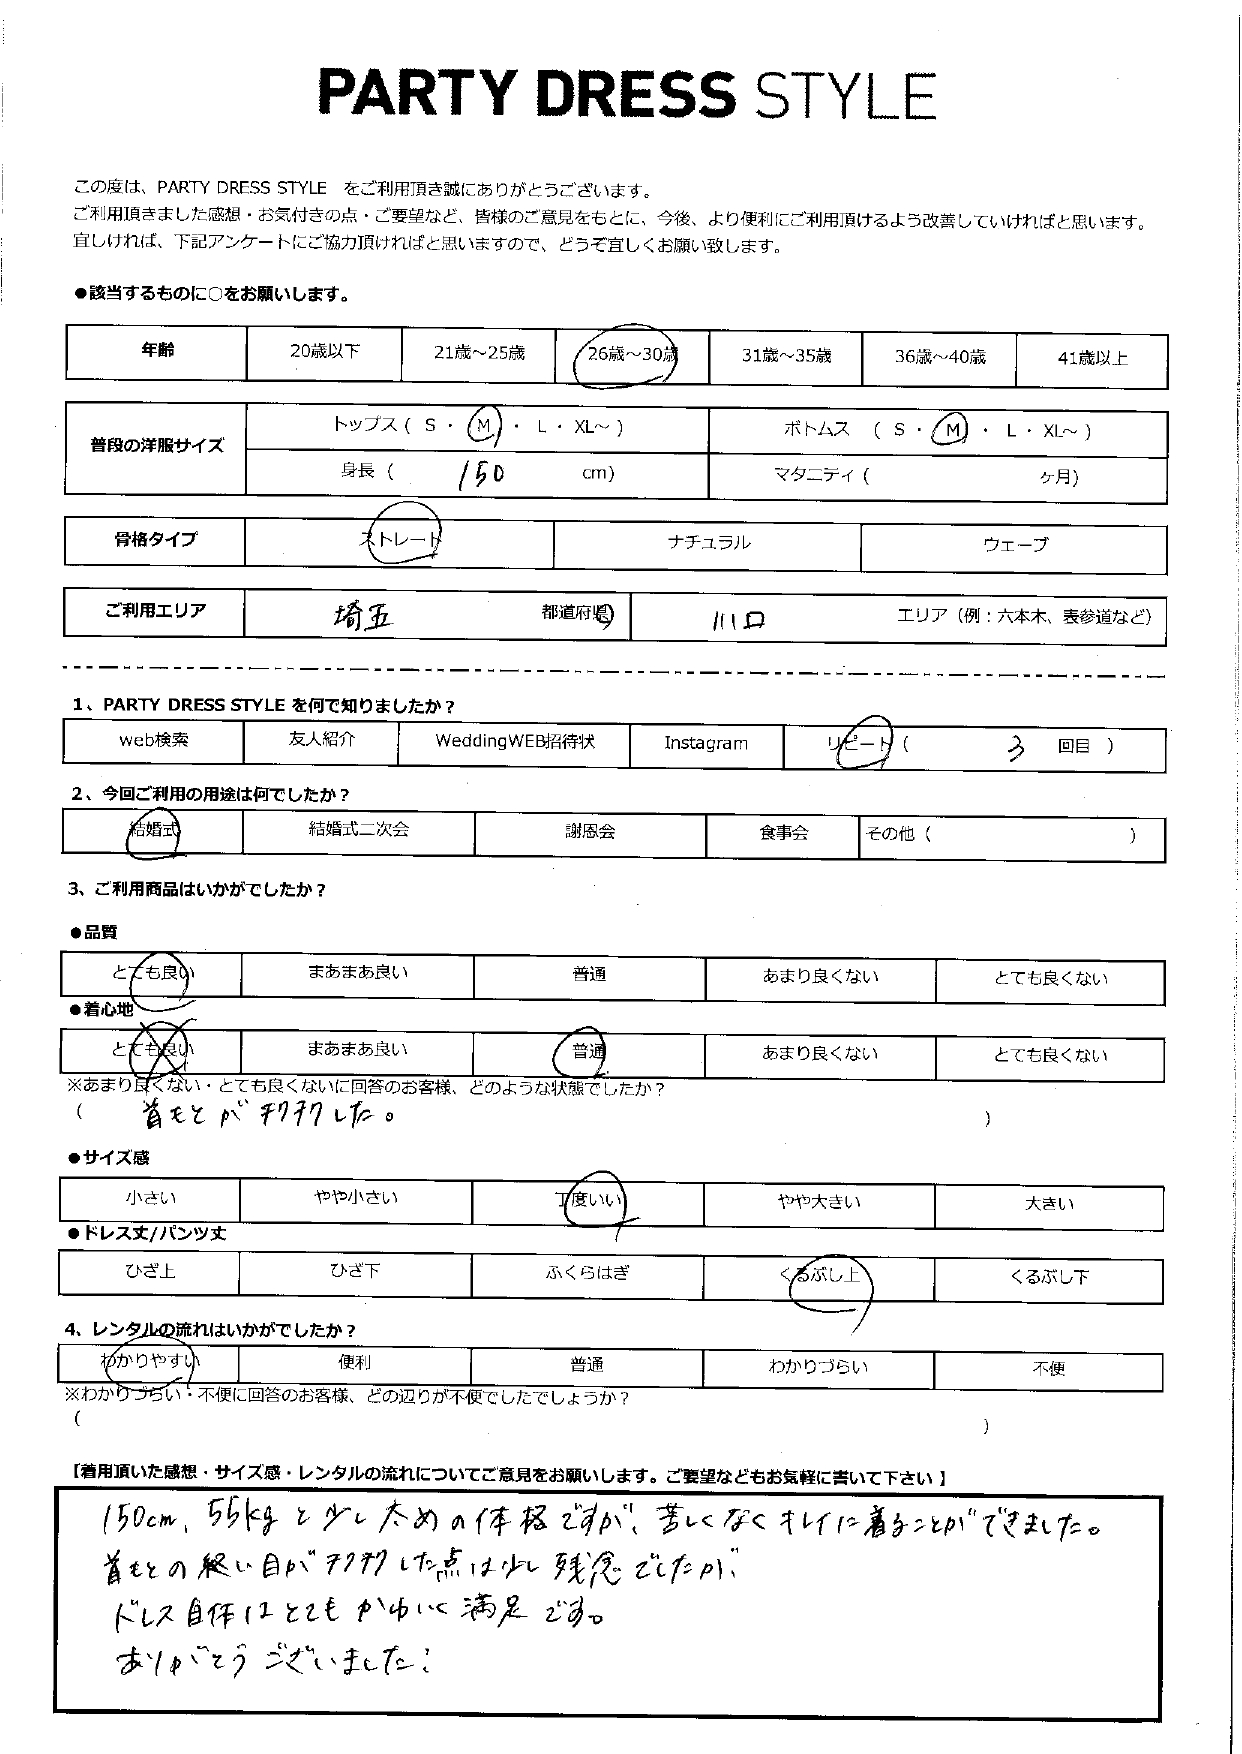 PARTY DRESS STYLE
この度は、PARTY DRESS STYLE をご利用頂き誠にありがとうございます。
ご利用頂きました感想・お気付きの点・ご要望など、皆様のご意見をもとに、今後、より便利にご利用頂けるよう改善していければと思います。
宜しければ、下記アンケートにご協力頂ければと思いますので、どうぞ宜しくお願い致します。
●該当するものに○をお願いします。
年齢 20歳以下 21歳～25歳 26歳～30歳 31歳～35歳 36歳～40歳 41歳以上
普段の洋服サイズ
トップス ( S ・ M ・ L ・ XL～ ) ボトムス ( S ・ M ・ L ・ XL～ )
身長 ( 150 cm) マタニティ ( ヶ月)
骨格タイプ ストレート ナチュラル ウェーブ
ご利用エリア 埼玉 都道府県 川口 エリア（例：六本木、表参道など）
1、PARTY DRESS STYLE を何で知りましたか？
web検索 友人紹介 WeddingWEB招待状 Instagram リピート ( 3 回目 )
2、今回ご利用の用途は何でしたか？
結婚式 結婚式二次会 謝恩会 食事会 その他 ( )
3、ご利用商品はいかがでしたか？
●品質
とても良い まあまあ良い 普通 あまり良くない とても良くない
●着心地
とても良い まあまあ良い 普通 あまり良くない とても良くない
※あまり良くない・とても良くないに回答のお客様、どのような状態でしたか？
( 首もとがチクチクした。 )
●サイズ感
小さい やや小さい 丁度いい やや大きい 大きい
●ドレス丈/パンツ丈
ひざ上 ひざ下 ふくらはぎ くるぶし上 くるぶし下
4、レンタルの流れはいかがでしたか？
わかりやすい 便利 普通 わかりづらい 不便
※わかりづらい・不便に回答のお客様、どの辺りが不便でしたでしょうか？
( )
【着用頂いた感想・サイズ感・レンタルの流れについてご意見をお願いします。ご要望などもお気軽に書いて下さい 】
150cm、55kgと少し太めの体格ですが、苦しくなくキレイに着ることができました。
首もとの縫い目がチクチクした点は少し残念でしたが、
ドレス自体はとてもかわいく満足です。
ありがとうございました！